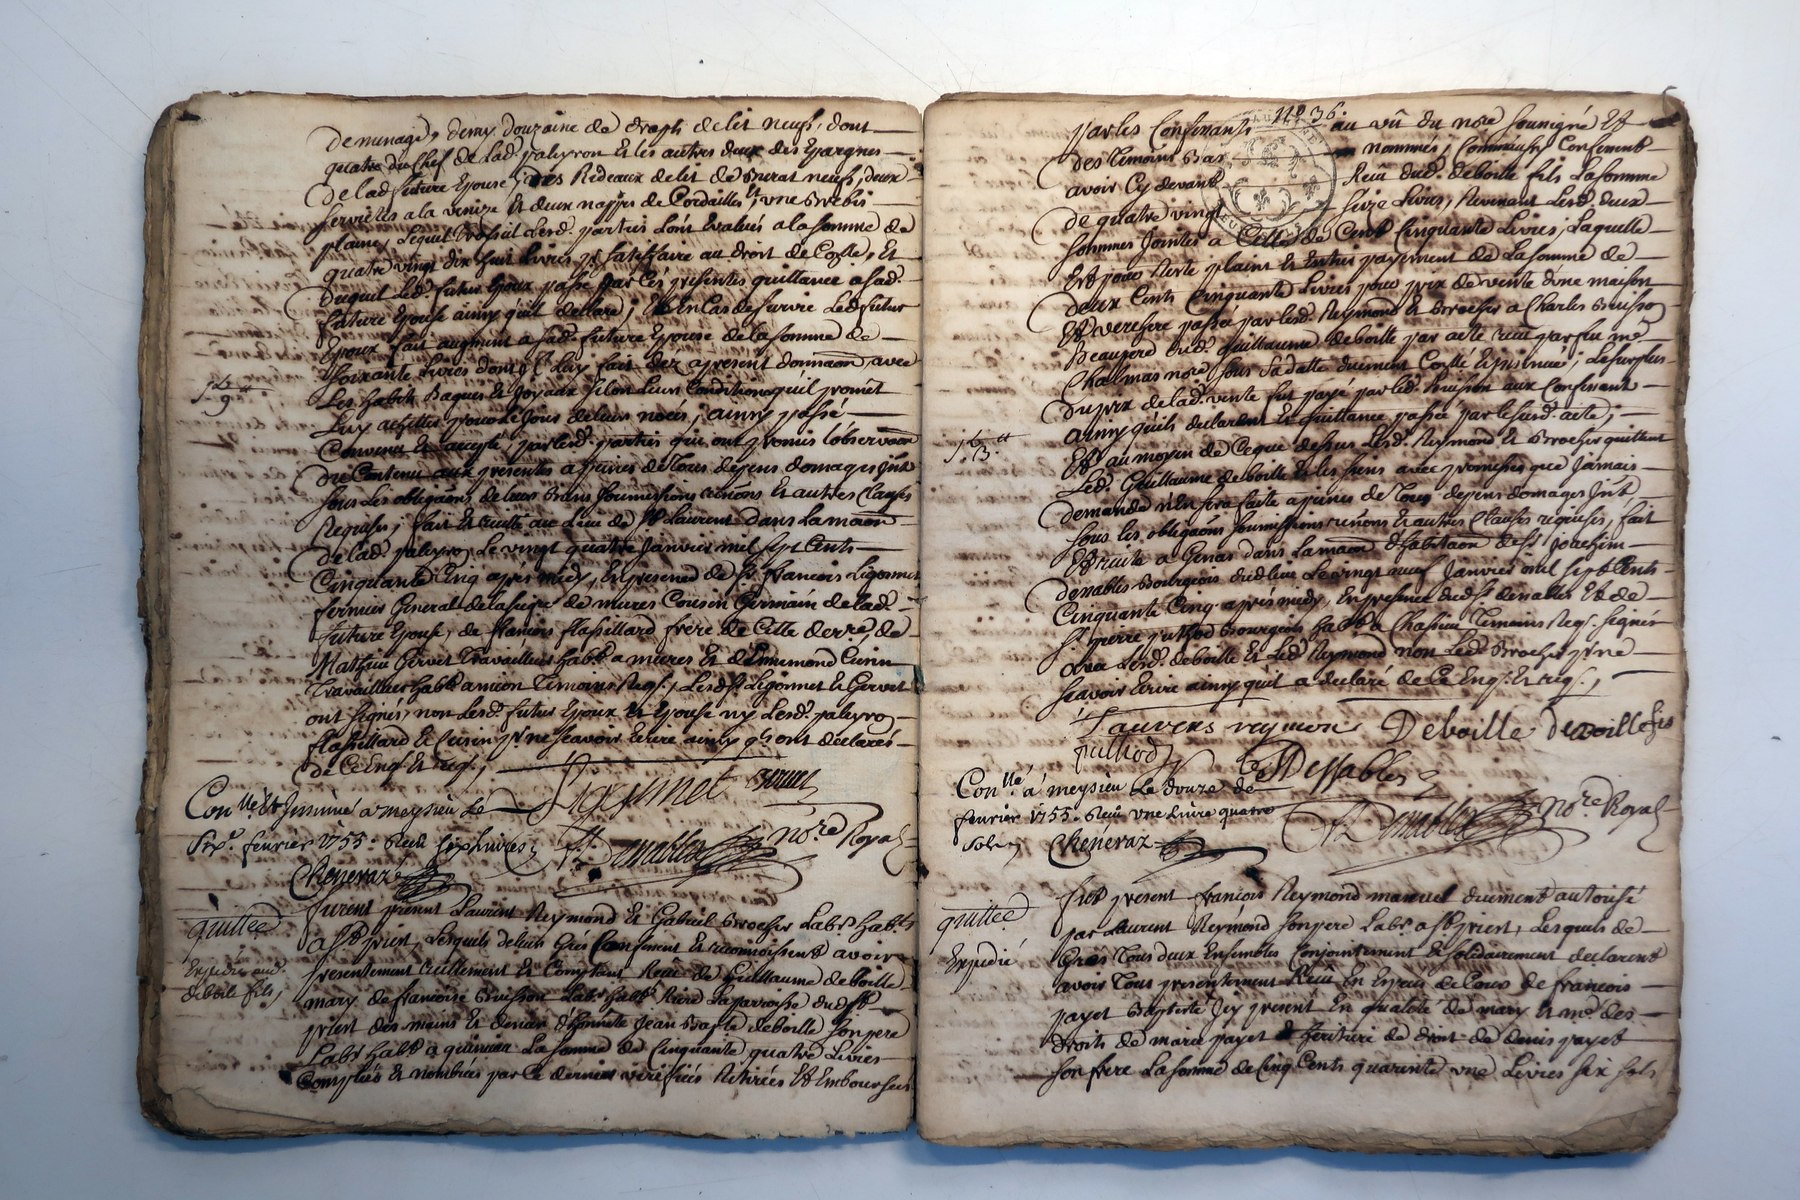 de menage, demy douzaine de draps de lit neufs, dont
quatre du Chef de lad. paleyron Et les autres deux des Epargnes
de lad. future Epouse; des Redeaux de lit de Burat neufs, deux
serviettes a la venize Et deux nappes de Cordailles, une Brebis
plaine, Lequel trossel Lesd. parties L'ont Evalué a la somme de
quatre vingt dix huit Livres pr. satisfaire au droit de Cosse, Et
duquel Led. futur Epoux passe par Ces presentes quittance a sad.
future Epouse ainsy quil declare; Et En Cas de survie Led. futur
Epoux fait augment a sad. future Epouse de la somme de
soixante Livres dont Il Luy fait dez apresent donnaon, avec
Les habits Bagues Et Joyaux selon Leurs Condition quil promet
Luy achetter pour Le Jour de leurs noces; ainsy passé
Convenu Et accepté par lesd. parties qui ont promis L'observaon
du Contenu aux presentes a peines de Tous depens domages Jnts.
sous Les obligaons de leurs Biens soumissions renons Et autres Clauses
Requises; fait Et recitté au Lieu de St Laurent dans La maon
de lad. paleyron, Le vingt quatre Janvier mil sept Cents
Cinquante Cinq après midy, En presence de Sr. francois Ligonnet
fermier General de la seigie. de mures Cousin Germain de lad.
future Epouse, de francois flassillard frere de Cette derre., de
Mathieu Gervet Travailleur habt. a mures Et d'Ennemond Cusin
Travailleur habt. a mion Temoins Reqs., Lesd. Sr. Ligonnet Et Gervet
ont signés, non Lesd. futur Epoux Et Epouse ny Lesd. paleyron
flassillard Et Cusin pr. ne scavoir Ecrire ainsy qls. ont declarés
de Ce Enq. Et req.,
Ligonnet Gervet
Conllé Et Jnsinué a meysieu Le
Sixe. fevrier 1755. Reçu six Livres
Desnables Nore Royal
Cheneraz
quittce.
furent présent Laurent Reymond Et Gabriel Brochier Labrs. habts.
a St. priest, Lesquels de leurs Gres Confessent Et reconnoissent avoir
Expedié aud.
deboile fils,
presentement reellement Et Comptant Reçu de Guillaume deboille
mary de francoise Buisson Labr. habt. Riere La parroisse dud. St.
priest des mains Et deniers d'honnete Jean Bapte. deboille son pere
Labr. habt. a quinieu La somme de Cinquante quatre Livres
Comptés Et nombrés par Ce dernier verifiées Retirées Et Emboursées
36.
par les Confessants au vû du nore. soussigné Et
des Temoins Bas nommés; Comm'aussy Confessent
avoir Cy devant Reçu dud. deboille fils La somme
de quatre vingt seize Livres, Revenant Lesd. deux
sommes Jointes a Celle de Cent Cinquante Livres, Laquelle
Est pour Reste plaint Et Entier payement de La somme de
deux Cents Cinquante Livres pour prix de vente d'une maison
Et verchere passée par lesd. Reymond Et Brochier a Charles Buisson
Beaupere dud. Guillaume deboille par acte reçu par feu me.
Chalmas nore. sous sa datte duement Contllé Et Jnsinué; La surplus
du prix de lad. vente fut payé par led. Buisson aux Confessant
ainsy quils declarent Et quittance passée par le susd. acte;
Et au moyen de Ceque dessus Lesd. Reymond Et Brochier quittent
Led. Guillaume deboille Et les siens avec promesses que Jamais
demande n'En sera faite a peines de Tous depens domages Jnts.
sous les obligaons soumissions renons Et autres Clauses requises, fait
Et recitté a Genas dans La maon d'habitaon de Sr. Joachim
desnables Bourgeois dud. lieu Le vingt neuf Janvier mil sept Cents
Cinquante Cinq après midy, En presence dud. Sr. desnables Et de
Sr. pierre juthod Bourgeois habt. a Chassieu Temoins Req. signés
avec Lesd. deboille Et Led. Reymond non Led. Brochier pr. ne
scavoir Ecrire ainsy quil a declaré de Ce Enq. Et req.,
Lauvens reymon Deboille deboille fils
juthod Desnables
Conllé a meysieu Le douze de
fevrier 1755. Reçu une Livre quatre
sols
Cheneraz
Desnables Nore Royal
quittce.
Expedié
fut present francois Reymond manuel duement autorisé
par Laurent Reymond son pere Labr. a St. priest, Lesquels de
Gres Tous deux Ensembles Conjointement Et solidairement declarent
avoir Tous presentement Reçu En Especes de Cours de francois
payet Baptiste Icy present En qualité de mary Et me. des
droits de marie payet heritiere de droit de denis payet
son frere La somme de Cinq Cents quarente une Livres six sols